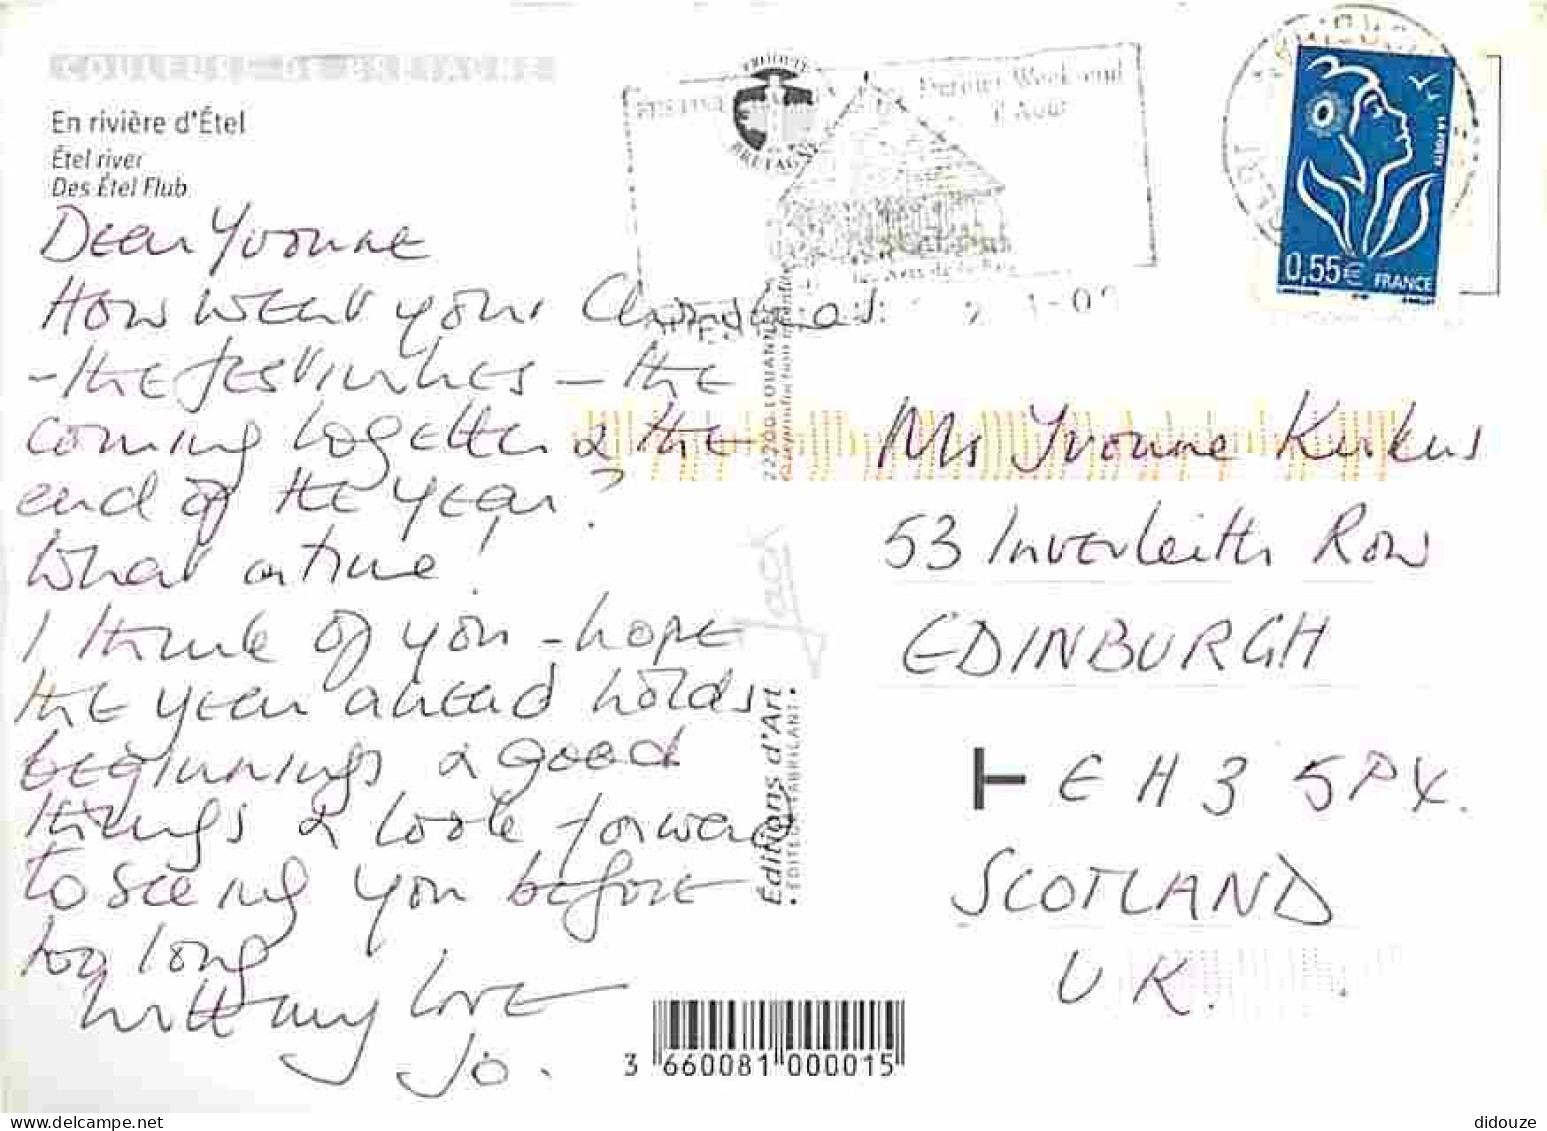 COULEUR DE BRETAGNE
En rivière d'Étel
Étel river
Des Étel Flub
Dear Yvonne
How went your Christmas
- the festivities - the
coming together & the
end of the year?
What a time!
I think of you - hope
the year ahead holds
beginnings & good
things & look forward
to seeing you before
too long
With my love
Jo.
PRODUIT
BRETAGNE
Dernier Week end
d'Août
22200 LOUANNEC
Reproduction interdite
Jack
Éditions d'Art
ÉDITEUR FABRICANT
3 660081 000015
LA POSTE
0,55€ FRANCE
Ms Yvonne Kirkus
53 Inverleith Row
EDINBURGH
EH3 5PX.
SCOTLAND
U.K.
didouze